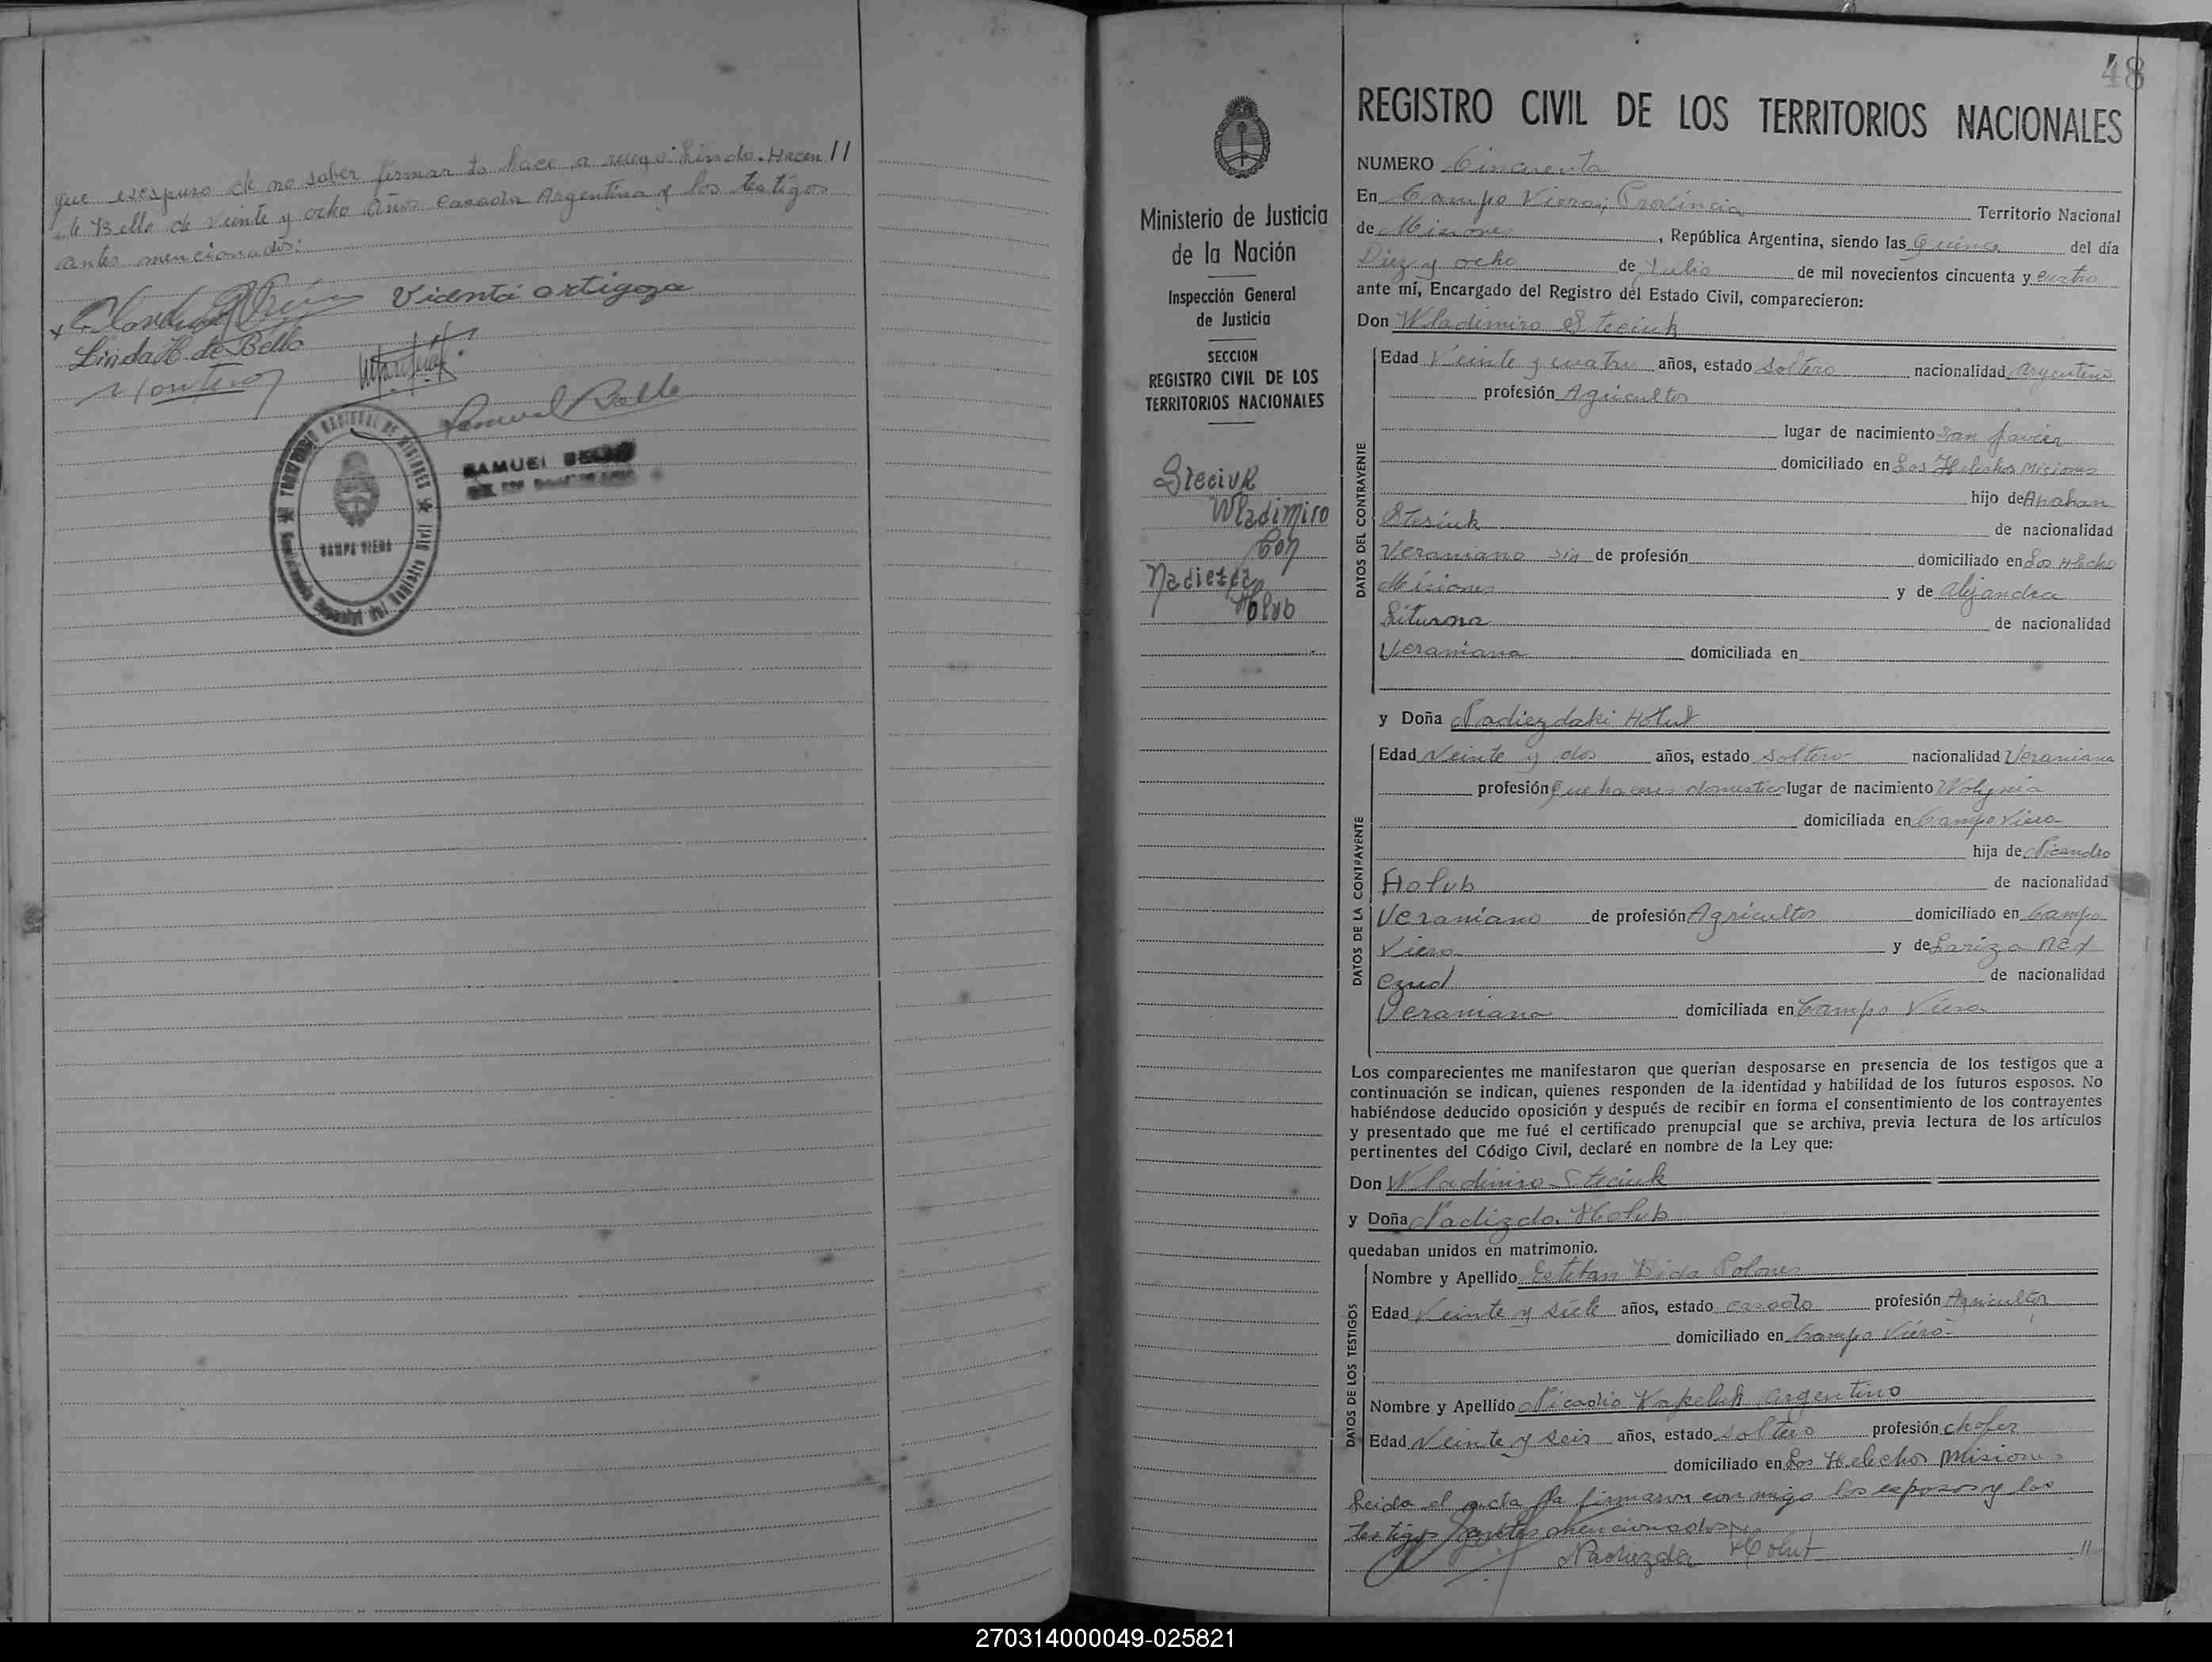 que expuso de no saber firmar lo hace a ruego Linda. Hacen //
de Bello de veinte y ocho años casada Argentina y los testigos
antes mencionados:
Vicenta Ortigoza
Linda H. de Bello
Samuel Bello
SAMUEL BELLO
CAMPO VIERA
48
REGISTRO CIVIL DE LOS TERRITORIOS NACIONALES
Ministerio de Justicia
de la Nación
Inspección General
de Justicia
SECCION
REGISTRO CIVIL DE LOS
TERRITORIOS NACIONALES
Steciuk
Wladimiro
Con
Nadiezda
Holub
NUMERO Cincuenta
En Campo Viera, Provincia Territorio Nacional
de Misiones, República Argentina, siendo las Quince del día
Diez y ocho de Julio de mil novecientos cincuenta y cuatro
ante mí, Encargado del Registro del Estado Civil, comparecieron:
Don Wladimiro Steciuk
DATOS DEL CONTRAYENTE
Edad Veinte y cuatro años, estado Soltero nacionalidad Argentino
profesión Agricultor
lugar de nacimiento San Javier
domiciliado en Los Helechos Misiones
hijo de
Steciuk de nacionalidad
Ucraniano sin de profesión domiciliado en Los Helecho
Misiones y de Alejandra
Lituma de nacionalidad
Ucraniana domiciliada en
y Doña Nadiezdaki Holub
DATOS DE LA CONTRAYENTE
Edad Veinte y dos años, estado Soltero nacionalidad Ucraniana
profesión Quehaceres domestico lugar de nacimiento Wolynia
domiciliada en Campo Viera
hija de Nicandro
Holub de nacionalidad
Ucraniano de profesión Agricultor domiciliado en Campo
Viera y de
de nacionalidad
Ucraniana domiciliada en Campo Viera
Los comparecientes me manifestaron que querían desposarse en presencia de los testigos que a
continuación se indican, quienes responden de la identidad y habilidad de los futuros esposos. No
habiéndose deducido oposición y después de recibir en forma el consentimiento de los contrayentes
y presentado que me fué el certificado prenupcial que se archiva, previa lectura de los artículos
pertinentes del Código Civil, declaré en nombre de la Ley que:
Don Wladimiro Steciuk
y Doña Nadizda Holub
quedaban unidos en matrimonio.
DATOS DE LOS TESTIGOS
Nombre y Apellido Esteban Bida Polones
Edad Veinte y siete años, estado casado profesión Agricultor
domiciliado en Campo Viera
Nombre y Apellido Nicadio Kapeluk Argentino
Edad Veinte y seis años, estado Soltero profesión chofer
domiciliado en Los Helechos Misiones
Leida el acta la firmaron conmigo los esposos y los
testigos antes mencionados
Nadiezda Holub //
270314000049-025821